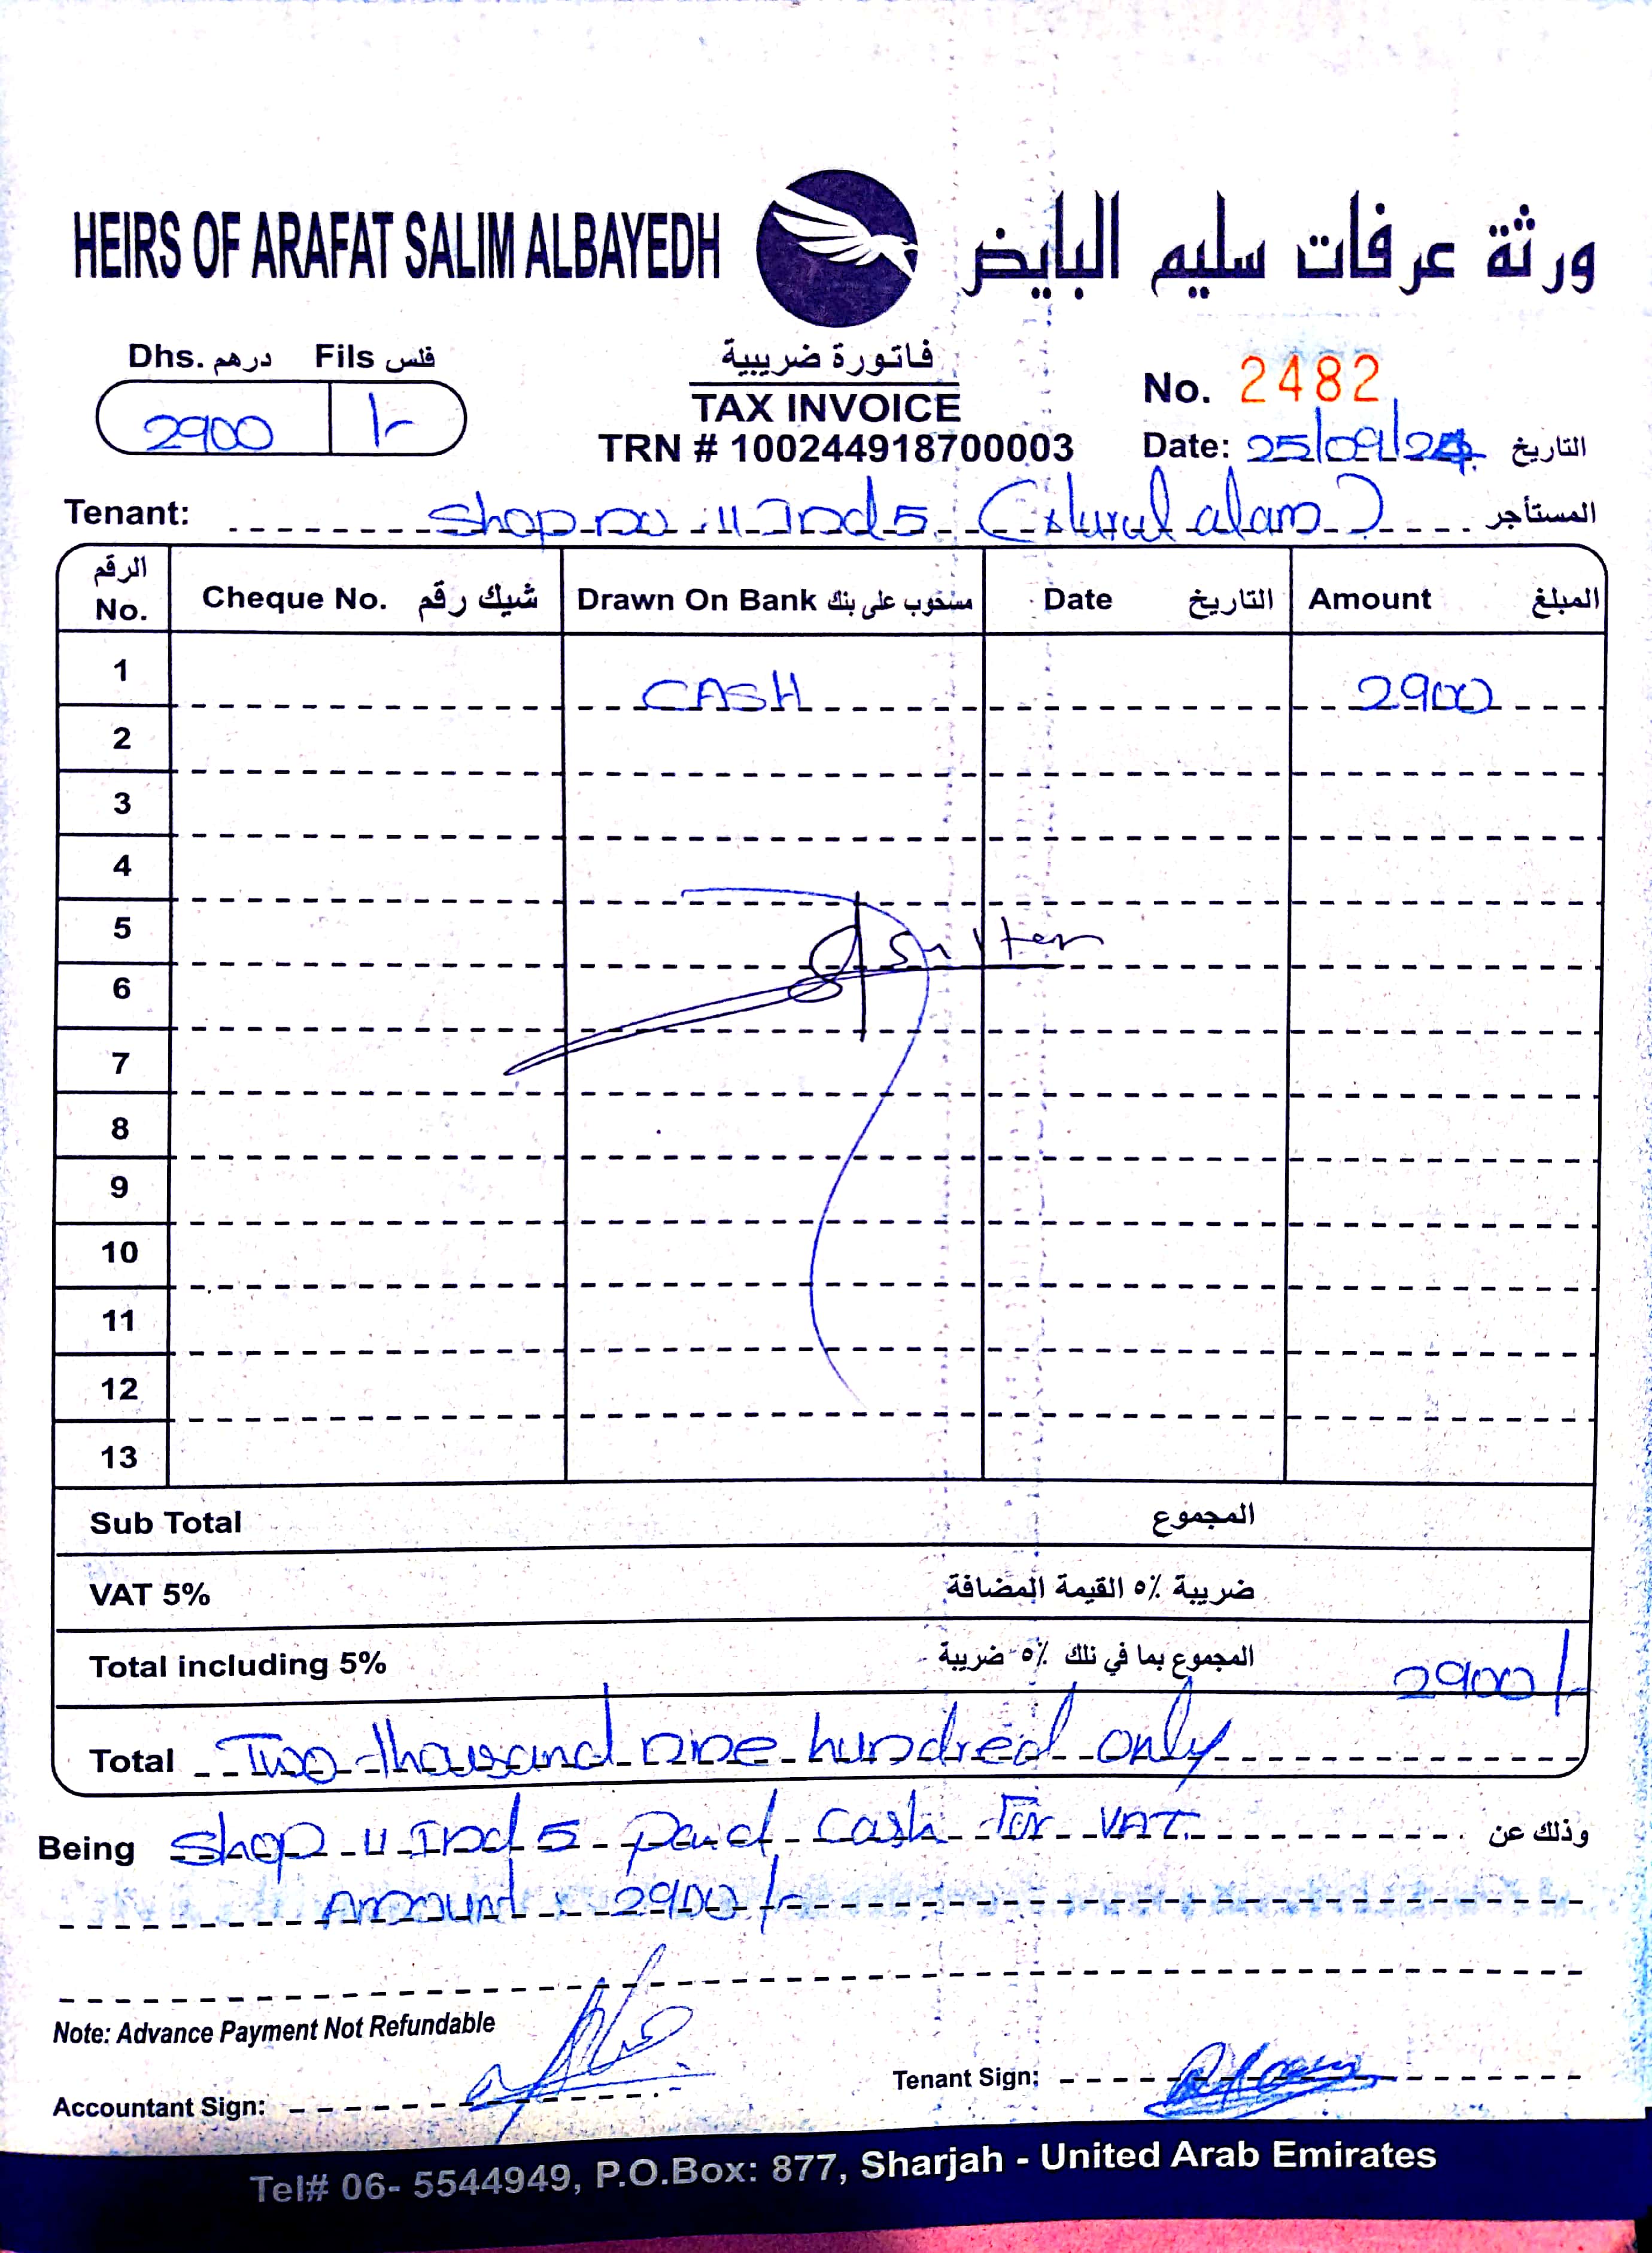 HEIRS OF ARAFAT SALIM ALBAYEDH ورثة عرفات سليم البايض
Dhs. درهم Fils فلس
2900 /-
فاتورة ضريبية
TAX INVOICE
TRN # 100244918700003
No. 2482
Date: 25/09/24 التاريخ
Tenant: Shop no :11 Ind 5. (Nurul alam) المستأجر
الرقم No. Cheque No. شيك رقم Drawn On Bank مسحوب على بنك Date التاريخ Amount المبلغ
1 CASH 2900
2
3
4
5
6
7
8
9
10
11
12
13
Sub Total المجموع
VAT 5% ضريبة ٥٪ القيمة المضافة
Total including 5% المجموع بما في ذلك ٥٪ ضريبة 2900/-
Total Two thousand nine hundred only
Being Shop 11 Ind 5 paid cash for VAT. وذلك عن
Amount : 2900/-
Note: Advance Payment Not Refundable
Accountant Sign:
Tenant Sign:
Tel# 06- 5544949, P.O.Box: 877, Sharjah - United Arab Emirates